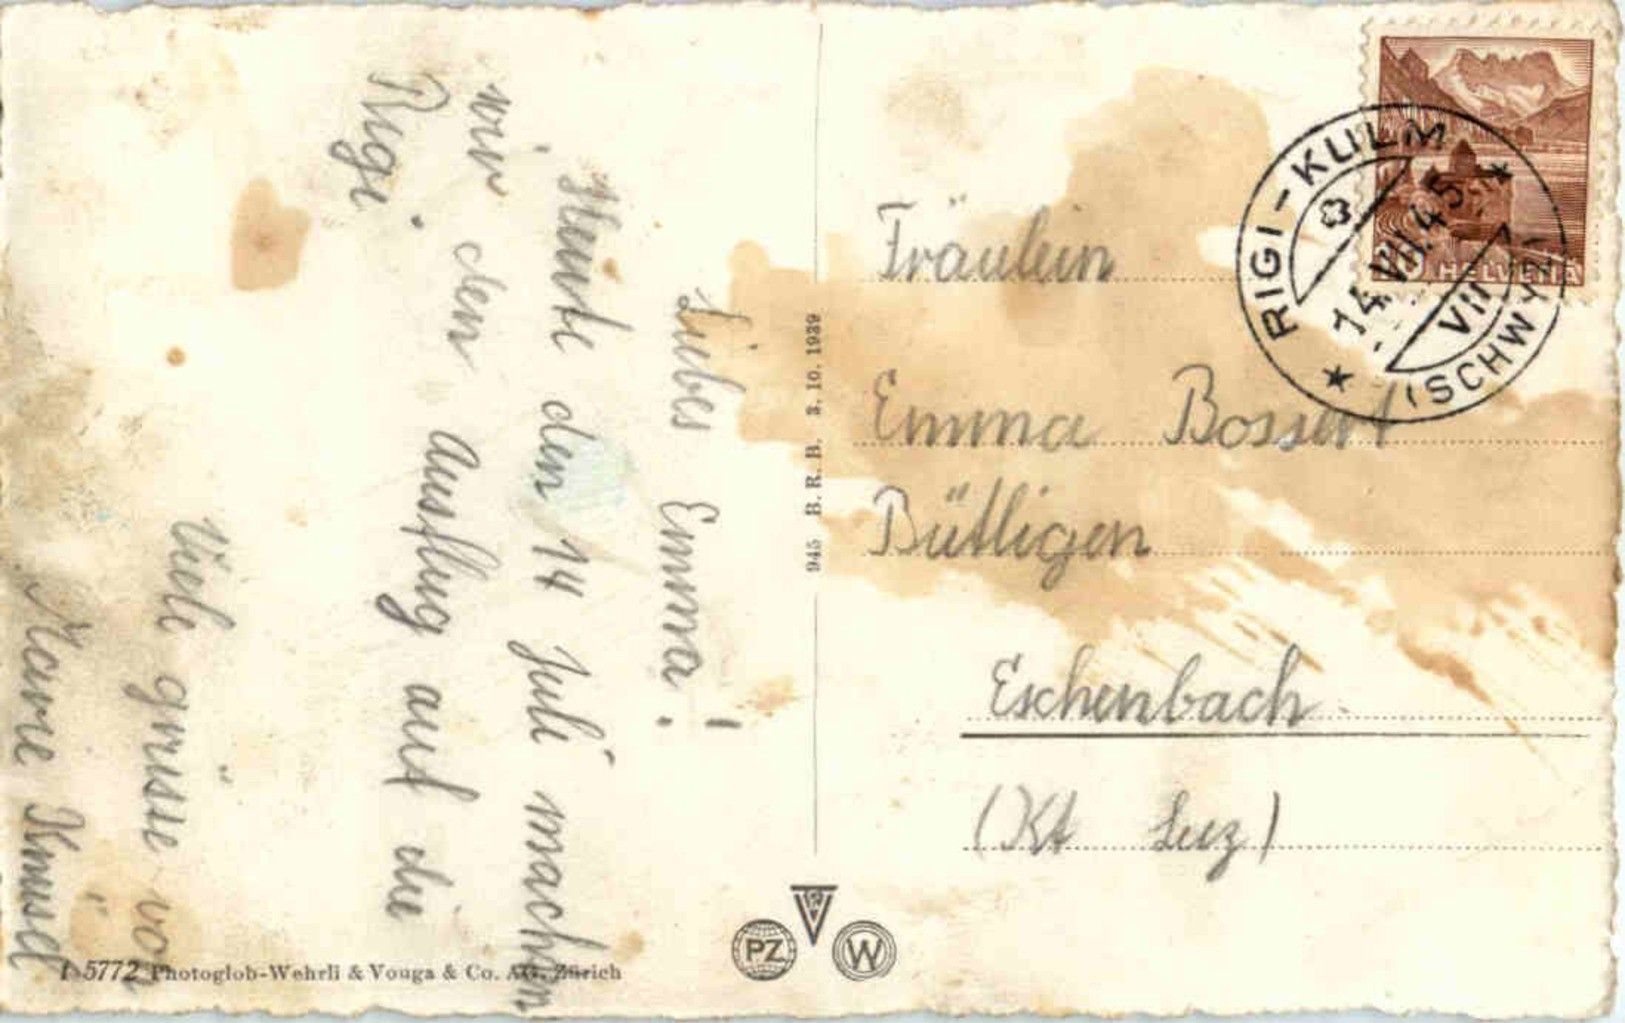 Liebes Emma!
Heute den 14 Juli machen
wir den ausflug auf die
Rigi.
Viele grüsse von
Fräulein
Emma Bossert
Bütligen
Eschenbach
(Kt Luz)
RIGI-KULM
14.VII.45
VII
(SCHWYZ)
HELVETIA
945 B. R. B. 3. 10. 1939
5772 Photoglob-Wehrli & Vouga & Co. AG. Zürich
PZ
V
W